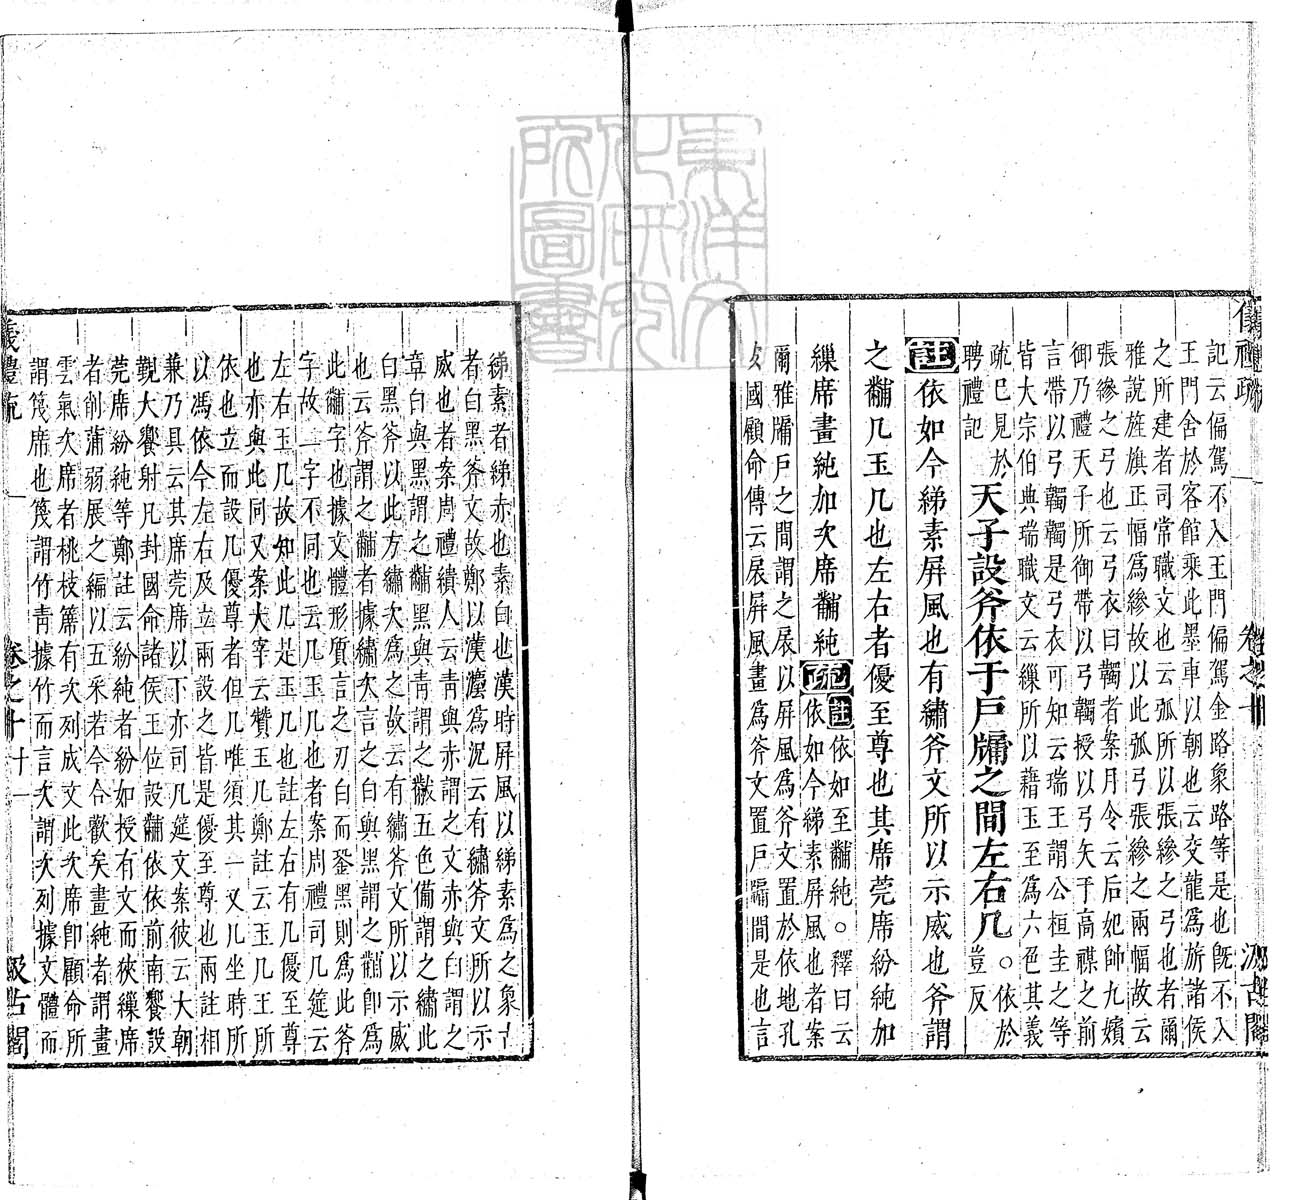 儀禮疏　卷之十　汲古閣
記云偏駕不入王門偏駕金路象路等是也旣不入
王門舍於客館乘此墨車以朝也云交龍爲旂諸侯
之所建者司常職文也云弧所以張縿之弓也者爾
雅說旌旗正幅爲縿故以此弧弓張縿之兩幅故云
張縿之弓也云弓衣曰韣者案月令云后妃帥九嬪
御乃禮天子所御帶以弓韣授以弓矢于高禖之前
言帶以弓韣韣是弓衣可知云瑞王謂公桓圭之等
皆大宗伯典瑞職文云繅所以藉玉至爲六色其義
疏巳見於
聘禮記
天子設斧依于戶牖之間左右几
〇依於
豈反
註依如今綈素屏風也有繡斧文所以示威也斧謂
之黼几玉几也左右者優至尊也其席莞席紛純加
繅席畫純加次席黼純疏
註依如至黼純〇釋曰云
依如今綈素屏風也者案
爾雅牖戶之間謂之扆以屏風爲斧文置於依地孔
安國顧命傳云扆屏風畫爲斧文置戶牖間是也言
綈素者綈赤也素白也漢時屏風以綈素爲之象古
者白黑斧文故鄭以漢灋爲況云有繡斧文所以示
威也者案周禮繢人云靑與赤謂之文赤與白謂之
章白與黑謂之黼黑與靑謂之黻五色備謂之繡此
白黑斧以此方繡次爲之故云有繡斧文所以示威
也云斧謂之黼者據繡次言之白與黑謂之黼卽爲
此黼字也據文體形質言之刃白而銎黑則爲此斧
字故二字不同也云几玉几也者案周禮司几筵云
左右玉几故知此几是玉几也註左右有几優至尊
也亦與此同又案大宰云贊玉几鄭註云玉几王所
依也立而設几優尊者但几唯須其一又几坐時所
以馮依今左右及立兩設之皆是優至尊也兩註相
兼乃具云其席莞席以下亦司几筵文案彼云大朝
覲大饗射凡封國命諸侯王位設黼依依前南饗設
莞席紛純等鄭註云紛純者紛如授有文而狹繅席
者削蒲蒻展之編以五采若今合歡矣畫純者謂畫
雲氣次席者桃枝簟有次列成文此次席卽顧命所
謂篾席也篾謂竹靑據竹而言次謂次列據文體而
儀禮疏　卷之十　十一　汲古閣
東洋文
化硏究
所圖書